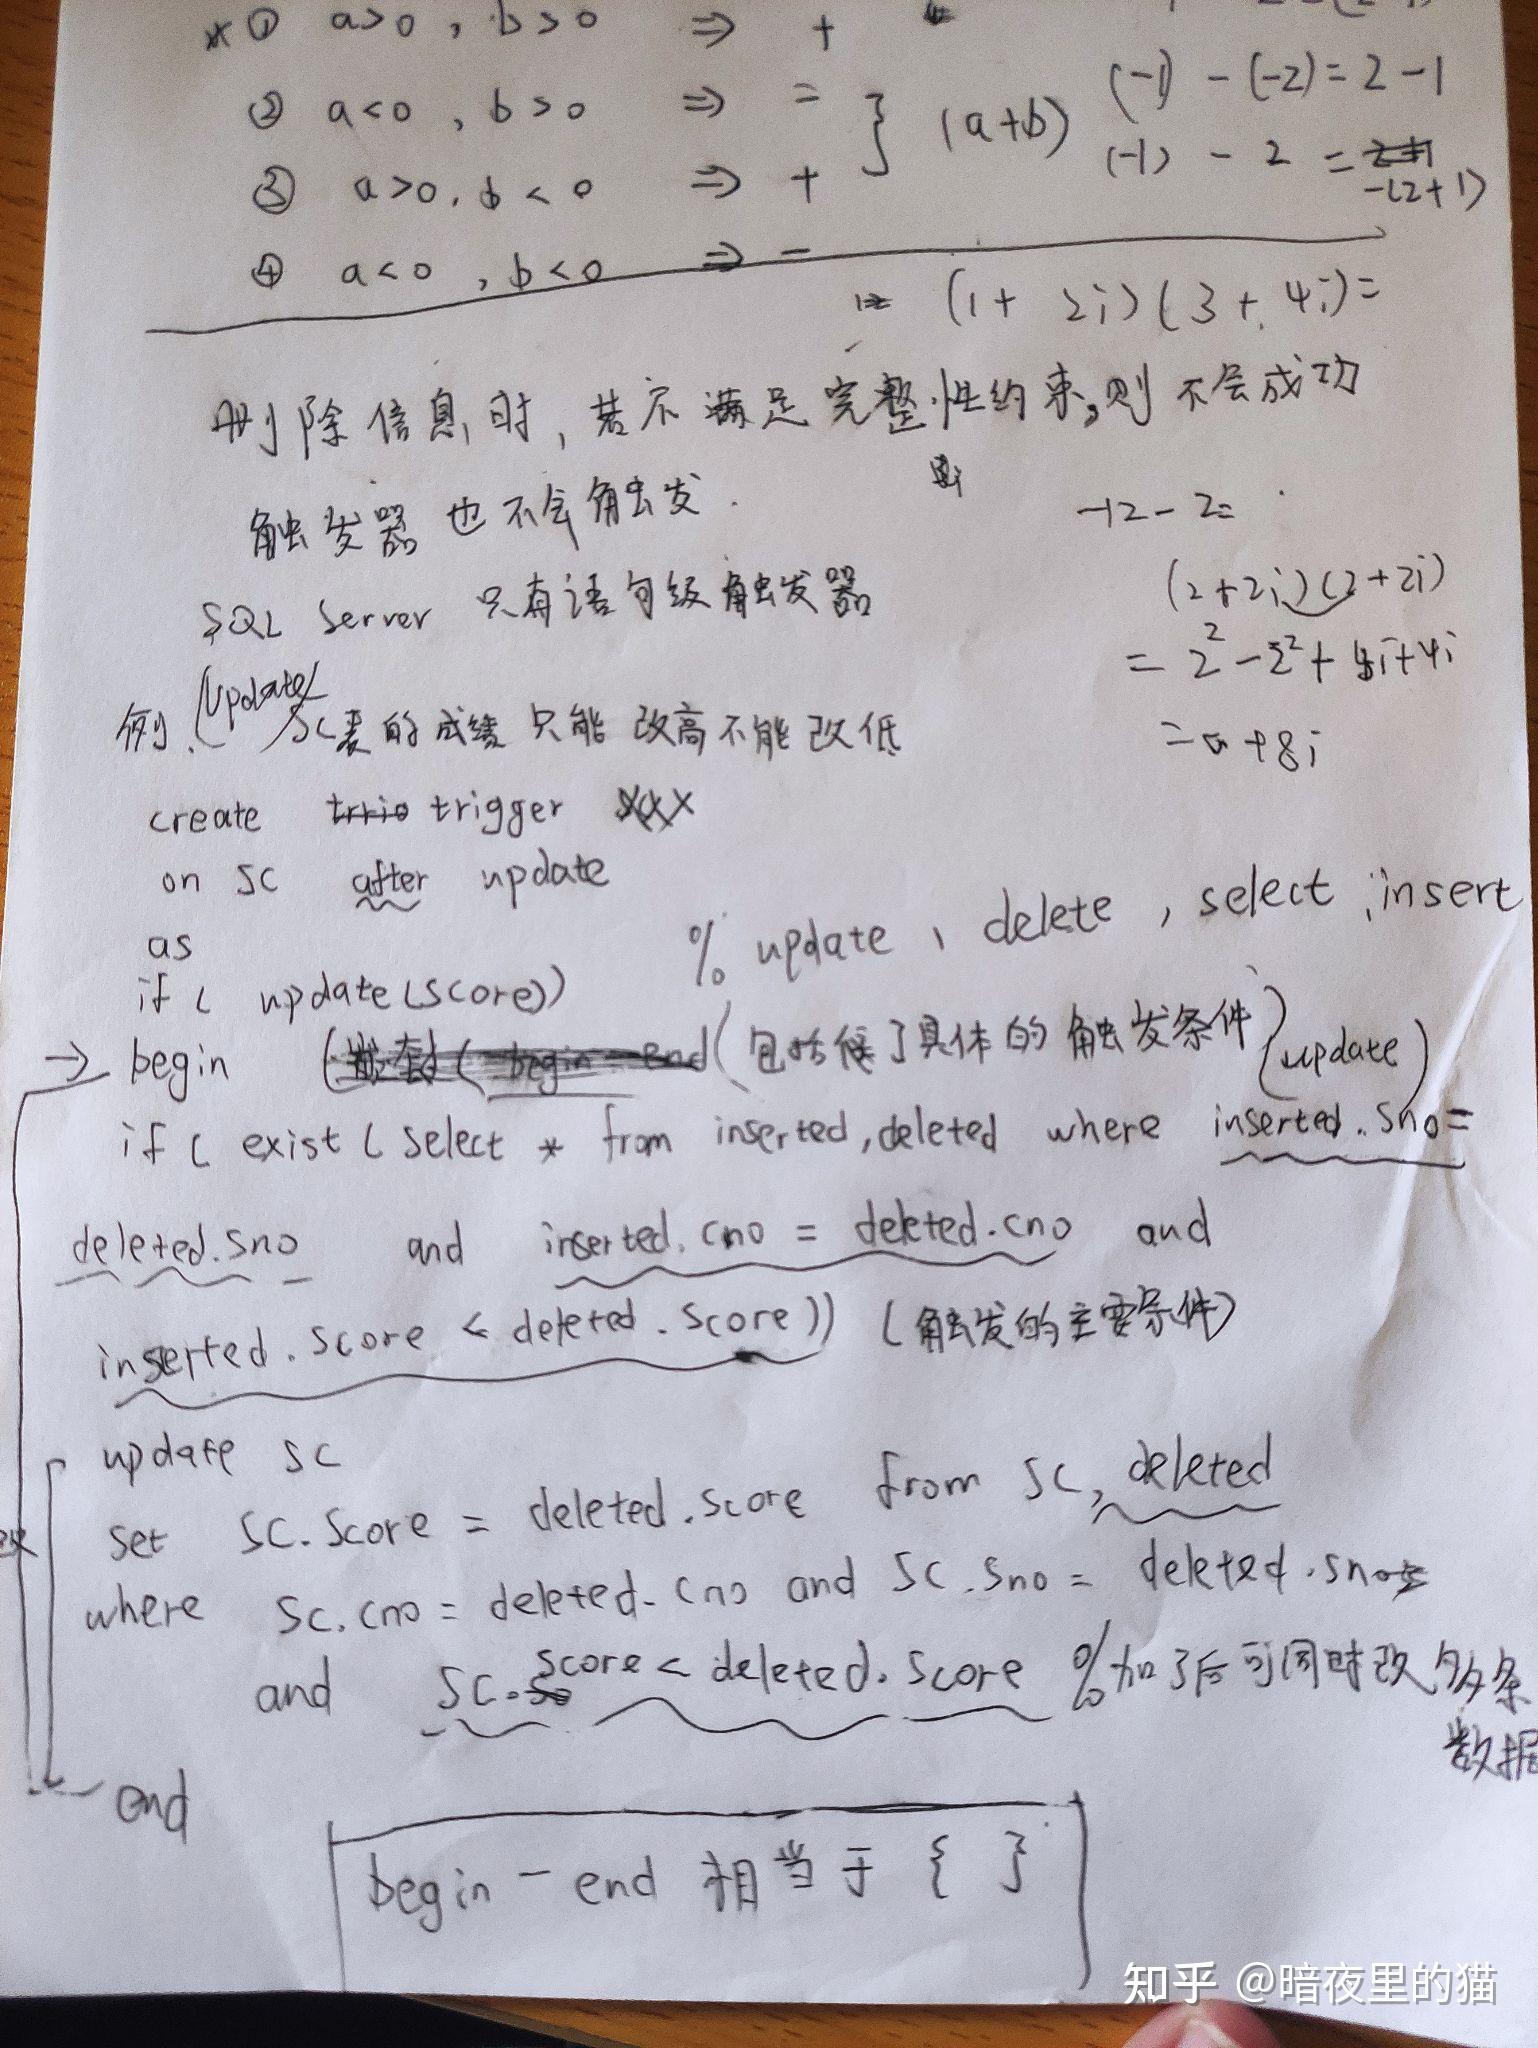 ① a>0 , b>0 ⇒ +
② a<0 , b>0 ⇒ =
③ a>0, b<0 ⇒ +
} (a+b)
④ a<0 , b<0 ⇒ -
(-1) - (-2) = 2 - 1
(-1) - 2 =
-(2+1)
(1 + 2i)(3 + 4i) =
删除信息时, 若不满足完整性约束,则不会成功
触发器也不会触发.
-12 - 2 =
(2+2i)(2+2i)
= 2² - 2² + 4i+4i
= 0 + 8i
SQL Server 只有语句级触发器
(update)
例. SC表的成绩只能改高不能改低
create trigger xxx
on SC after update
as % update、delete , select , insert
if ( update(score))
→ begin (包括了具体的触发条件 } update)
if ( exist ( select * from inserted,deleted where inserted.sno=
deleted.sno and inserted.cno = deleted.cno and
inserted.score < deleted.score)) (触发的主要条件)
update SC
set SC.Score = deleted.score from SC, deleted
where SC.cno = deleted.cno and SC.sno = deleted.sno
and SC.score < deleted.score %加了后可同时改多条
数据
end
begin - end 相当于 { }
知乎 @暗夜里的猫